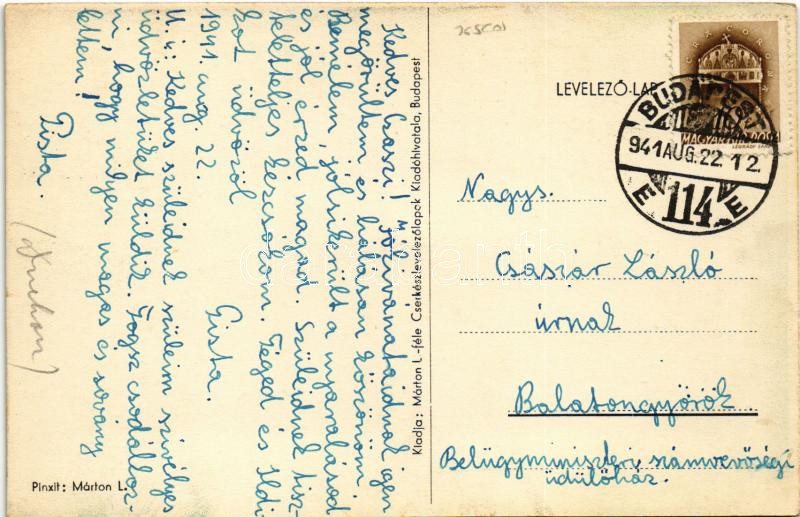 26501
LEVELEZŐ-LAP
MAGYAR KIR. POSTA
LÉGRÁDY SÁND.
BUDAPEST
941 AUG. 22 12
114
E E
Nagys.
Császár László
úrnak
Balatongyörök
Belügyminiszteri számvevőségi
üdülőház.
Kedves Csaszi! Jókívánataidnak igen
megörültem és hálásan köszönöm.
Remélem, jól sikerült a nyaralásod
és jól érzed magad. Szüleidnek tisz-
teletteljes kézcsókom. Téged és Ildi-
kót üdvözöl
1941. aug. 22. Pista.
U. i.: Kedves szüleidnek szüleim szívélyes
üdvözletüket küldik. Fogsz csodálkoz-
ni, hogy milyen magas és sovány
lettem!
Pista.
Kiadja: Márton L.-féle Cserkészlevelezőlapok Kiadóhivatala, Budapest
Pinxit: Márton L.